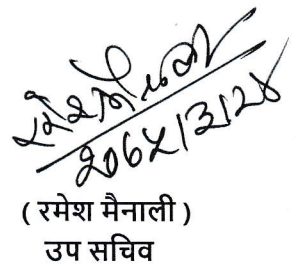 रमेश मैनाली
२०७५।३।२४
( रमेश मैनाली )
उप सचिव